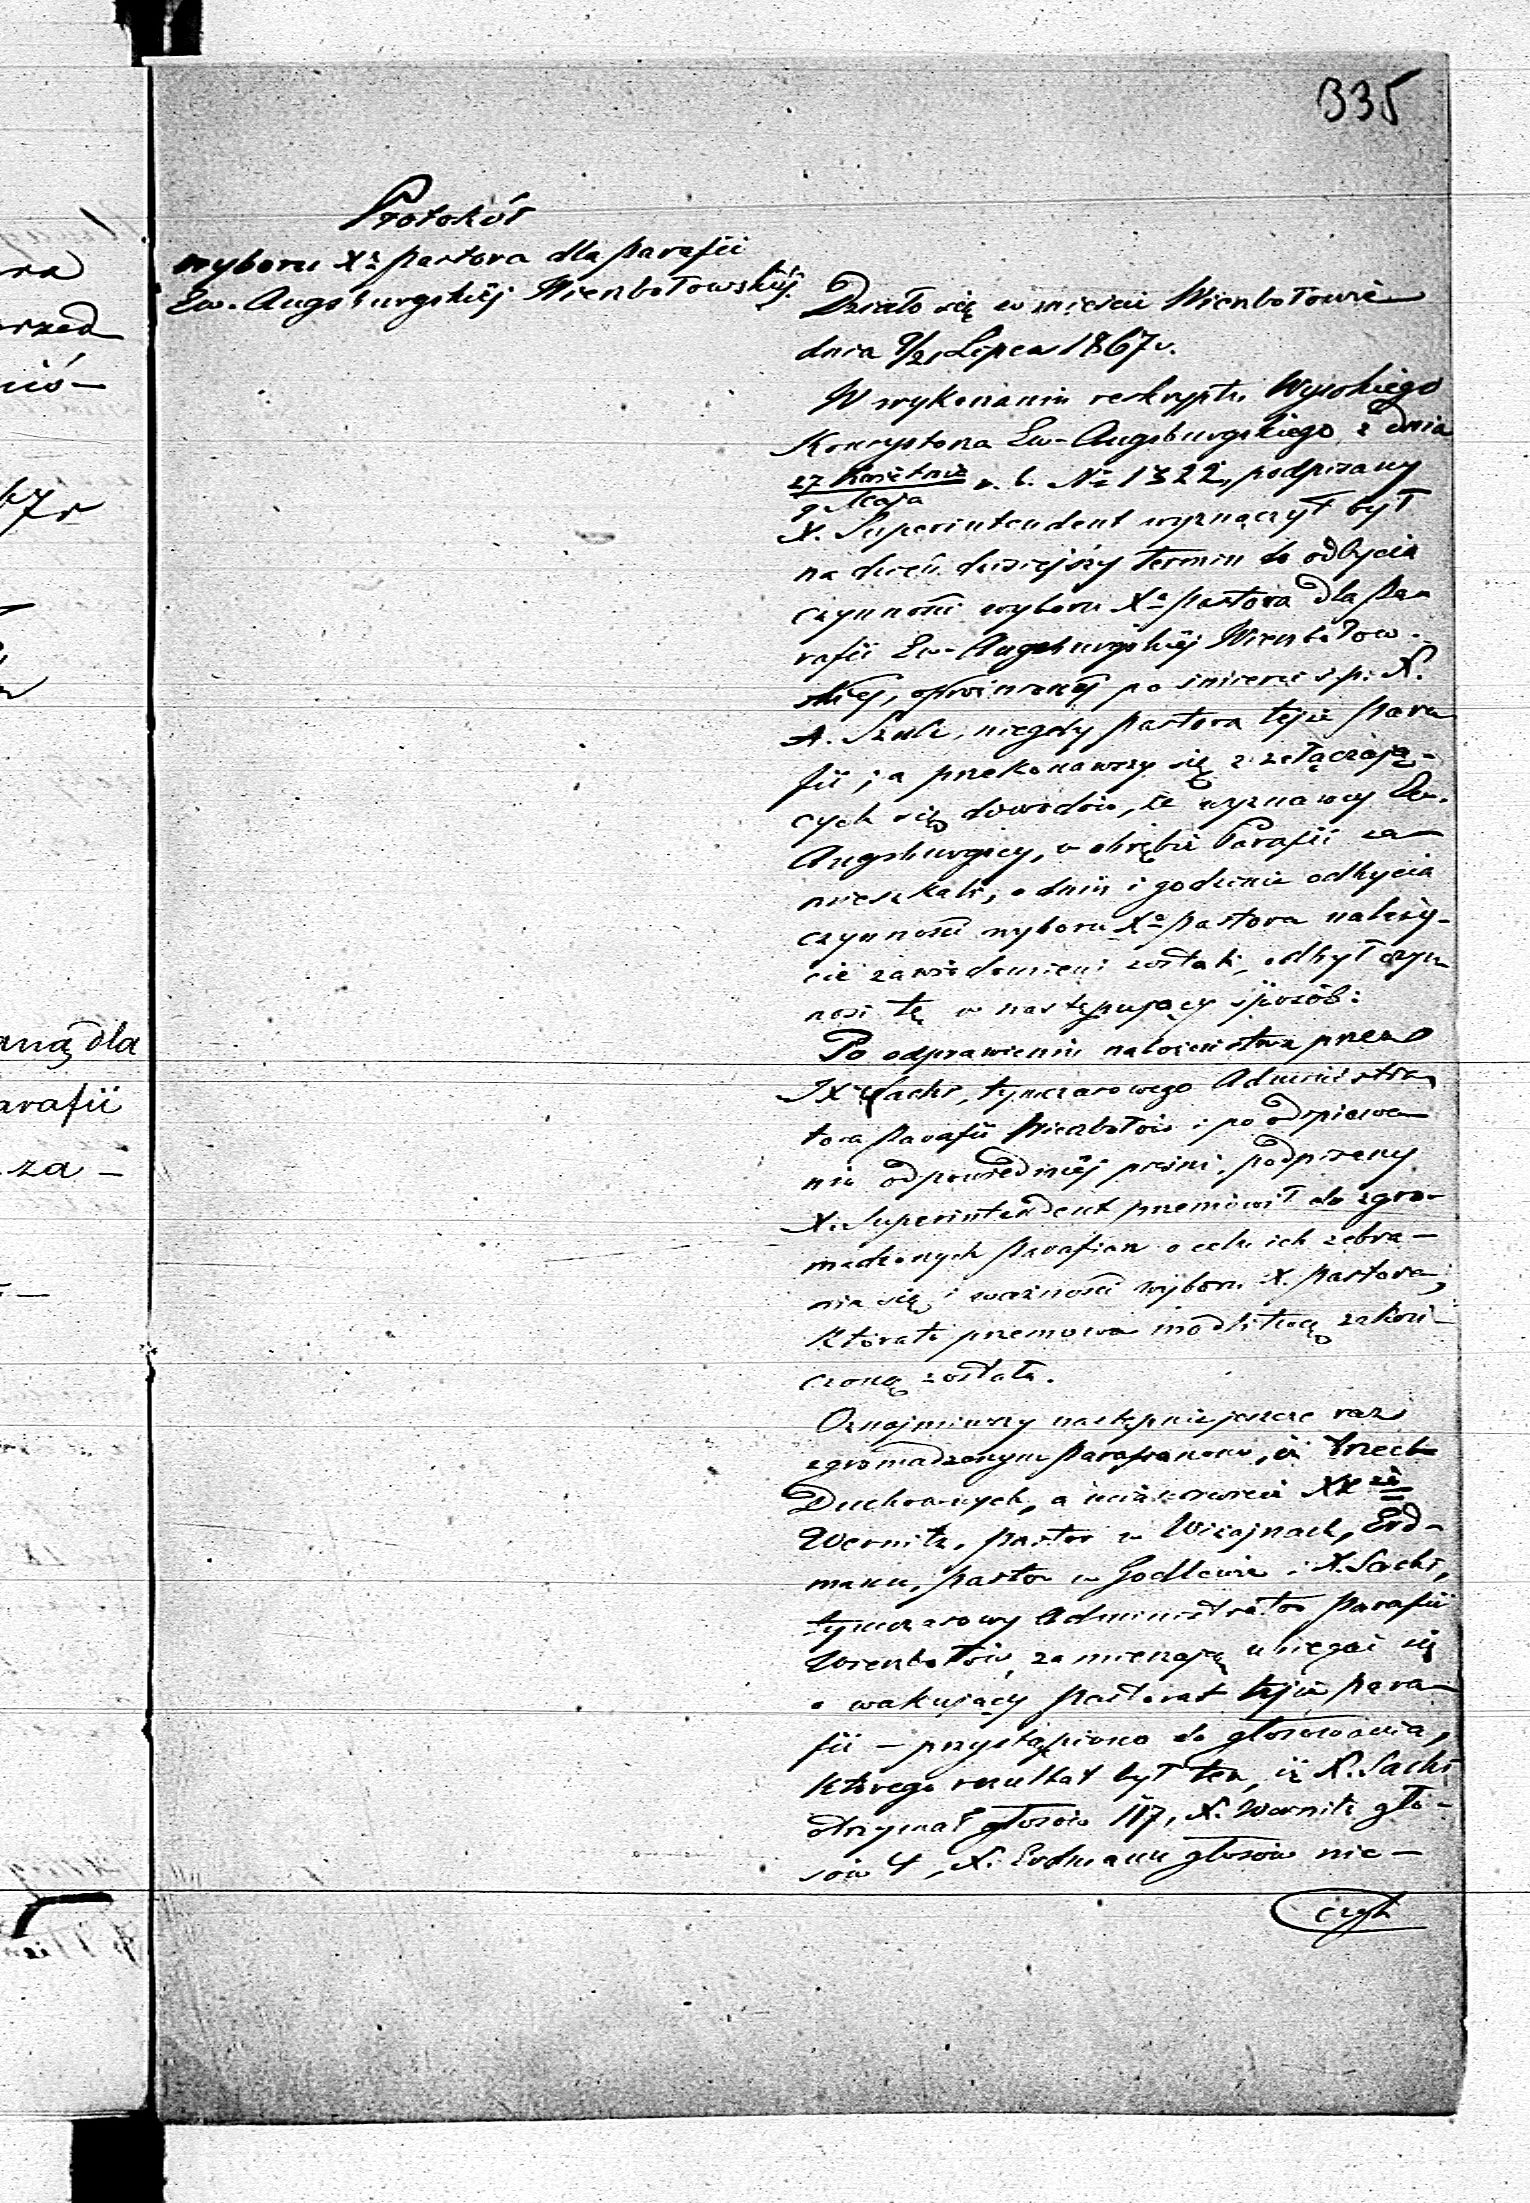 335
Protokół
wyboru Xa pastora dla parafii
Ew. Augsburgskiej Wierzbołowskiej.
Działo się w mieście Wierzbołowie
dnia 9/21 Lipca 1867 r.
W wykonaniu reskryptu Wysokiego
Konsystorza Ew-Augsburgskiego z dnia
27 Kwietnia
9 Maja
r. b. No 1322, podpisany
X. Superintendent wyznaczył był
na dzień dzisiejszy termin do odbycia
czynności wyboru Xa pastora dla Pa-
rafii Ew-Augsburgskiej Wierzbołow-
skiej, opróżnionej po śmierci ś.p. X.
A. Szulc, niegdy pastora tejże para-
fii; a przekonawszy się z załączają-
cych się dowodów, że wyznawcy Ew.
Augsburgscy, w obrębie Parafii za-
mieszkali, o dniu i godzinie odbycia
czynności wyboru Xa pastora należy-
cie zawiadomieni zostali, odbył czyn-
ność tę w następujący sposób:
Po odprawieniu nabożeństwa przez
JX Sachs, tymczasowego Administra-
tora parafii Wierzbołów i po odśpiewa-
niu odpowiedniej pieśni, podpisany
X. Superintendent przemówił do zgro-
madzonych parafian o celu ich zebra-
nia się i ważności wyboru X. pastora,
którato przemowa modlitwą zakoń-
czoną została.
Oznajmiwszy następnie jeszcze raz
zgromadzonym parafianom, iż trzech
Duchownych, a mianowicie XX
Wernitz, pastor w Wiżajnach, Erd-
mann, pastor w Godlewie i X. Sachs,
tymczasowy Administrator parafii
Wierzbołów, zamierzają ubiegać się
o wakujący pastorat tejże para-
fii – przystąpiono do głosowania,
którego rezultat był ten, iż X. Sachs
otrzymał głosów 117, X. Wernitz gło-
sów 4, X. Erdmann głosów nic –
rad
rzed
niś-
67 r
aną dla
arafii
za –